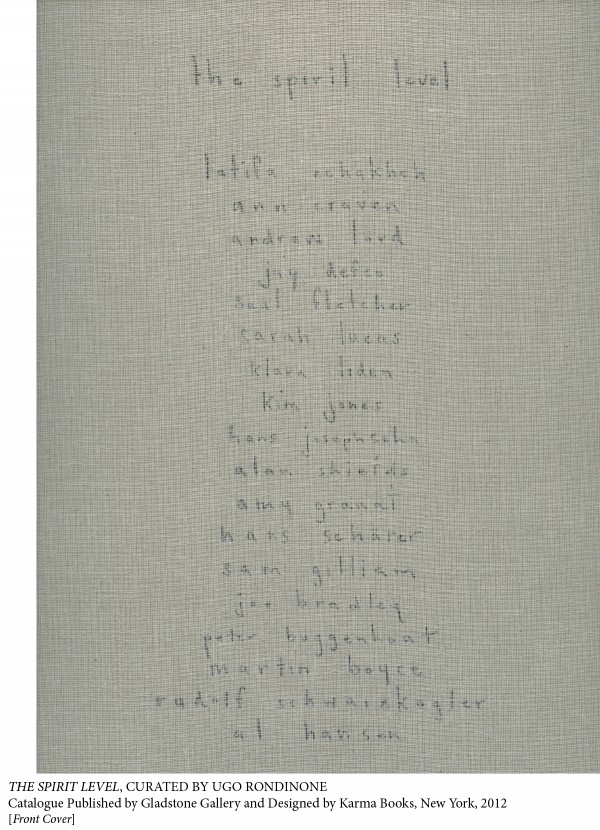 the spirit level
latifa echakhch
ann craven
andrew lord
jay defeo
saul fletcher
sarah lucas
klara liden
kim jones
hans josephsohn
alan shields
amy granat
hans schärer
sam gilliam
joe bradley
peter buggenhout
martin boyce
rudolf schwarzkogler
al hansen
THE SPIRIT LEVEL, CURATED BY UGO RONDINONE
Catalogue Published by Gladstone Gallery and Designed by Karma Books, New York, 2012
[Front Cover]